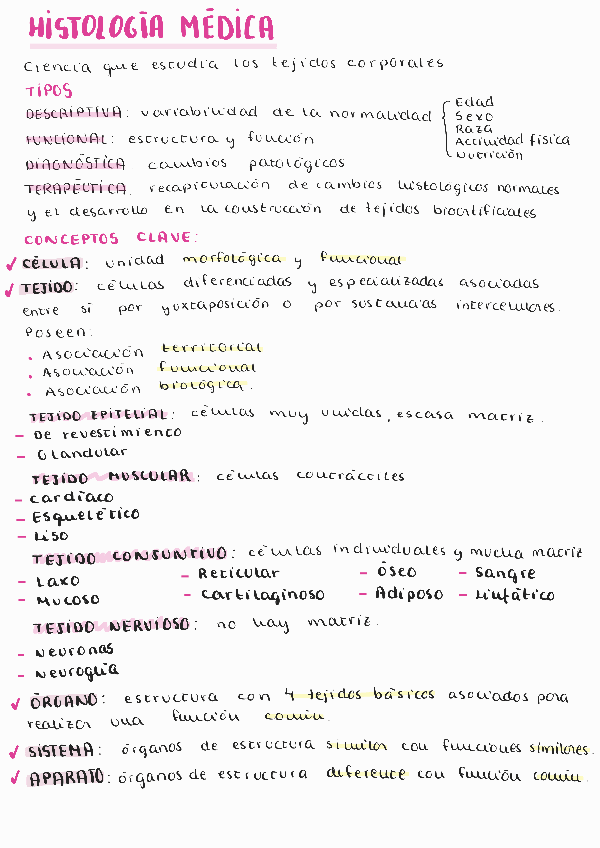 HISTOLOGÍA MÉDICA
Ciencia que estudia los tejidos corporales
TIPOS
DESCRIPTIVA: variabilidad de la normalidad { Edad
Sexo
Raza
Actividad física
Nutrición
FUNCIONAL: estructura y función
DIAGNÓSTICA cambios patológicos
TERAPÉUTICA. recapitulación de cambios histológicos normales
y el desarrollo en la construcción de tejidos bioartificiales
CONCEPTOS CLAVE:
✓ CÉLULA: unidad morfológica y funcional
✓ TEJIDO: células diferenciadas y especializadas asociadas
entre sí por yuxtaposición o por sustancias intercelulares.
Poseen:
. Asociación territorial
. Asociación funcional
. Asociación biológica.
TEJIDO EPITELIAL: células muy unidas, escasa matriz.
- De revestimiento
- Glandular
TEJIDO MUSCULAR: células contráctiles
- Cardíaco
- Esquelético
- Liso
TEJIDO CONJUNTIVO: células individuales y mucha matriz
- Laxo - Reticular - Óseo - Sangre
- Mucoso - Cartilaginoso - Adiposo - Linfático
TEJIDO NERVIOSO: no hay matriz.
- Neuronas
- Neuroglia
✓ ÓRGANO: estructura con 4 tejidos básicos asociados para
realizar una función común.
✓ SISTEMA: órganos de estructura similar con funciones similares.
✓ APARATO: órganos de estructura diferente con función común.